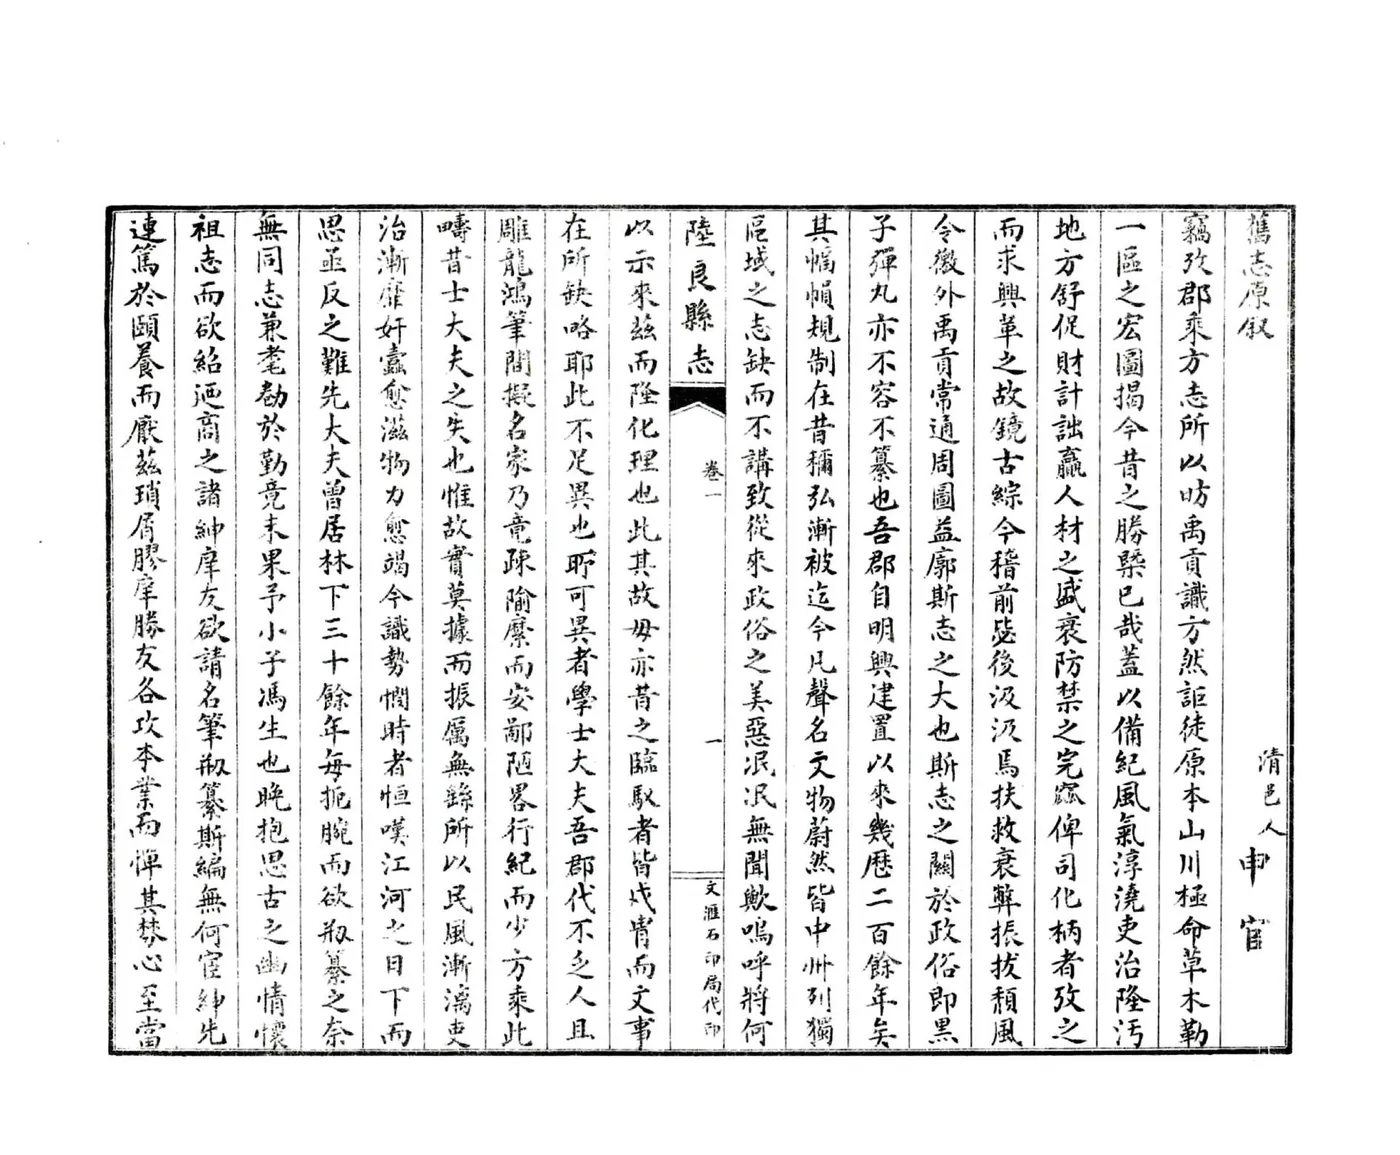 舊志原叙
清邑人申宧
竊攷郡乘方志所以昉禹貢識方然詎徒原本山川極命草木勒
一區之宏圖揭今昔之勝槩已哉蓋以備紀風氣淳澆吏治隆汚
地方舒促財計詘贏人材之盛衰防禁之完窳俾司化柄者攷之
而求興革之故鏡古綜今稽前毖後汲汲焉扶救衰獘振拔頹風
令徼外禹貢常通周圖益廓斯志之大也斯志之關於政俗即黑
子彈丸亦不容不纂也吾郡自明興建置以來幾歷二百餘年矣
其幅幀規制在昔稱弘漸被迄今凡聲名文物蔚然皆中州列獨
區域之志缺而不講致從來政俗之美惡泯泯無聞歟嗚呼將何
陸良縣志
卷一
一
文滙石印局代印
以示來茲而隆化理也此其故毋亦昔之臨馭者皆戍胄而文事
在所缺略耶此不足異也所可異者學士大夫吾郡代不乏人且
雕龍鴻筆間擬名家乃竟疎隃縻而安鄙陋畧行紀而少方乘此
疇昔士大夫之失也惟故實莫據而振厲無繇所以民風漸漓吏
治漸靡奸蠹愈滋物力愈竭今識勢憫時者恒嘆江河之日下而
思亟反之難先大夫曾居林下三十餘年每扼腕而欲剏纂之奈
無同志兼耄勌於勤竟未果予小子馮生也晚抱思古之幽情懷
祖志而欲紹迺商之諸紳庠友欲請名筆剏纂斯編無何宦紳先
連篤於頤養而厭茲瑣屑膠庠勝友各攻本業而憚其棼心至當